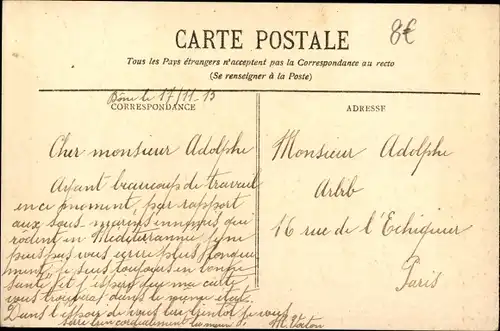 8€
CARTE POSTALE
Tous les Pays étrangers n'acceptent pas la Correspondance au recto
(Se renseigner à la Poste)
Bône le 17/11-15
CORRESPONDANCE
Cher monsieur Adolphe
Ayant beaucoup de travail
en ce moment, par rapport
aux sous-marins ennemis qui
rodent en Mediterrannée, je ne
puis pas vous écrire plus longue
ment, je suis toujours en bonne
santé et j'espère que ma carte
vous trouvera dans le même etat.
Dans l'espoir de vous lire bientôt je vous
serre bien cordialement la main
ADRESSE
Monsieur Adolphe
Arbib
16 rue de l'Echiquier
Paris